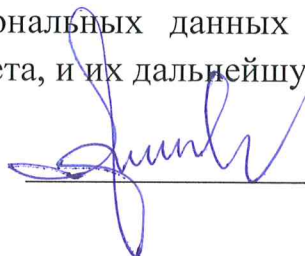 ональных данных
ета, и их дальнейшу